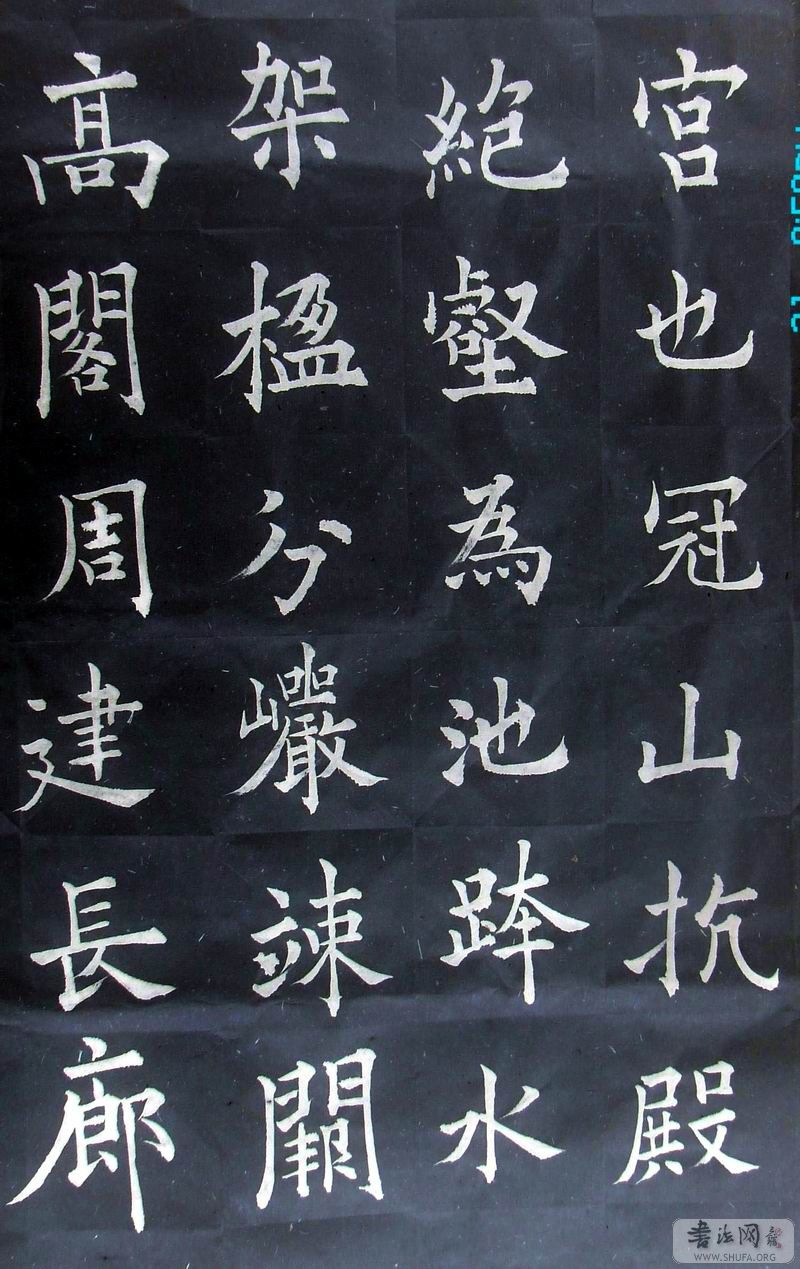 宮也冠山抗殿
絶壑為池跨水
架楹分巖竦闕
高閣周建長廊
书法网
WWW.SHUFA.ORG